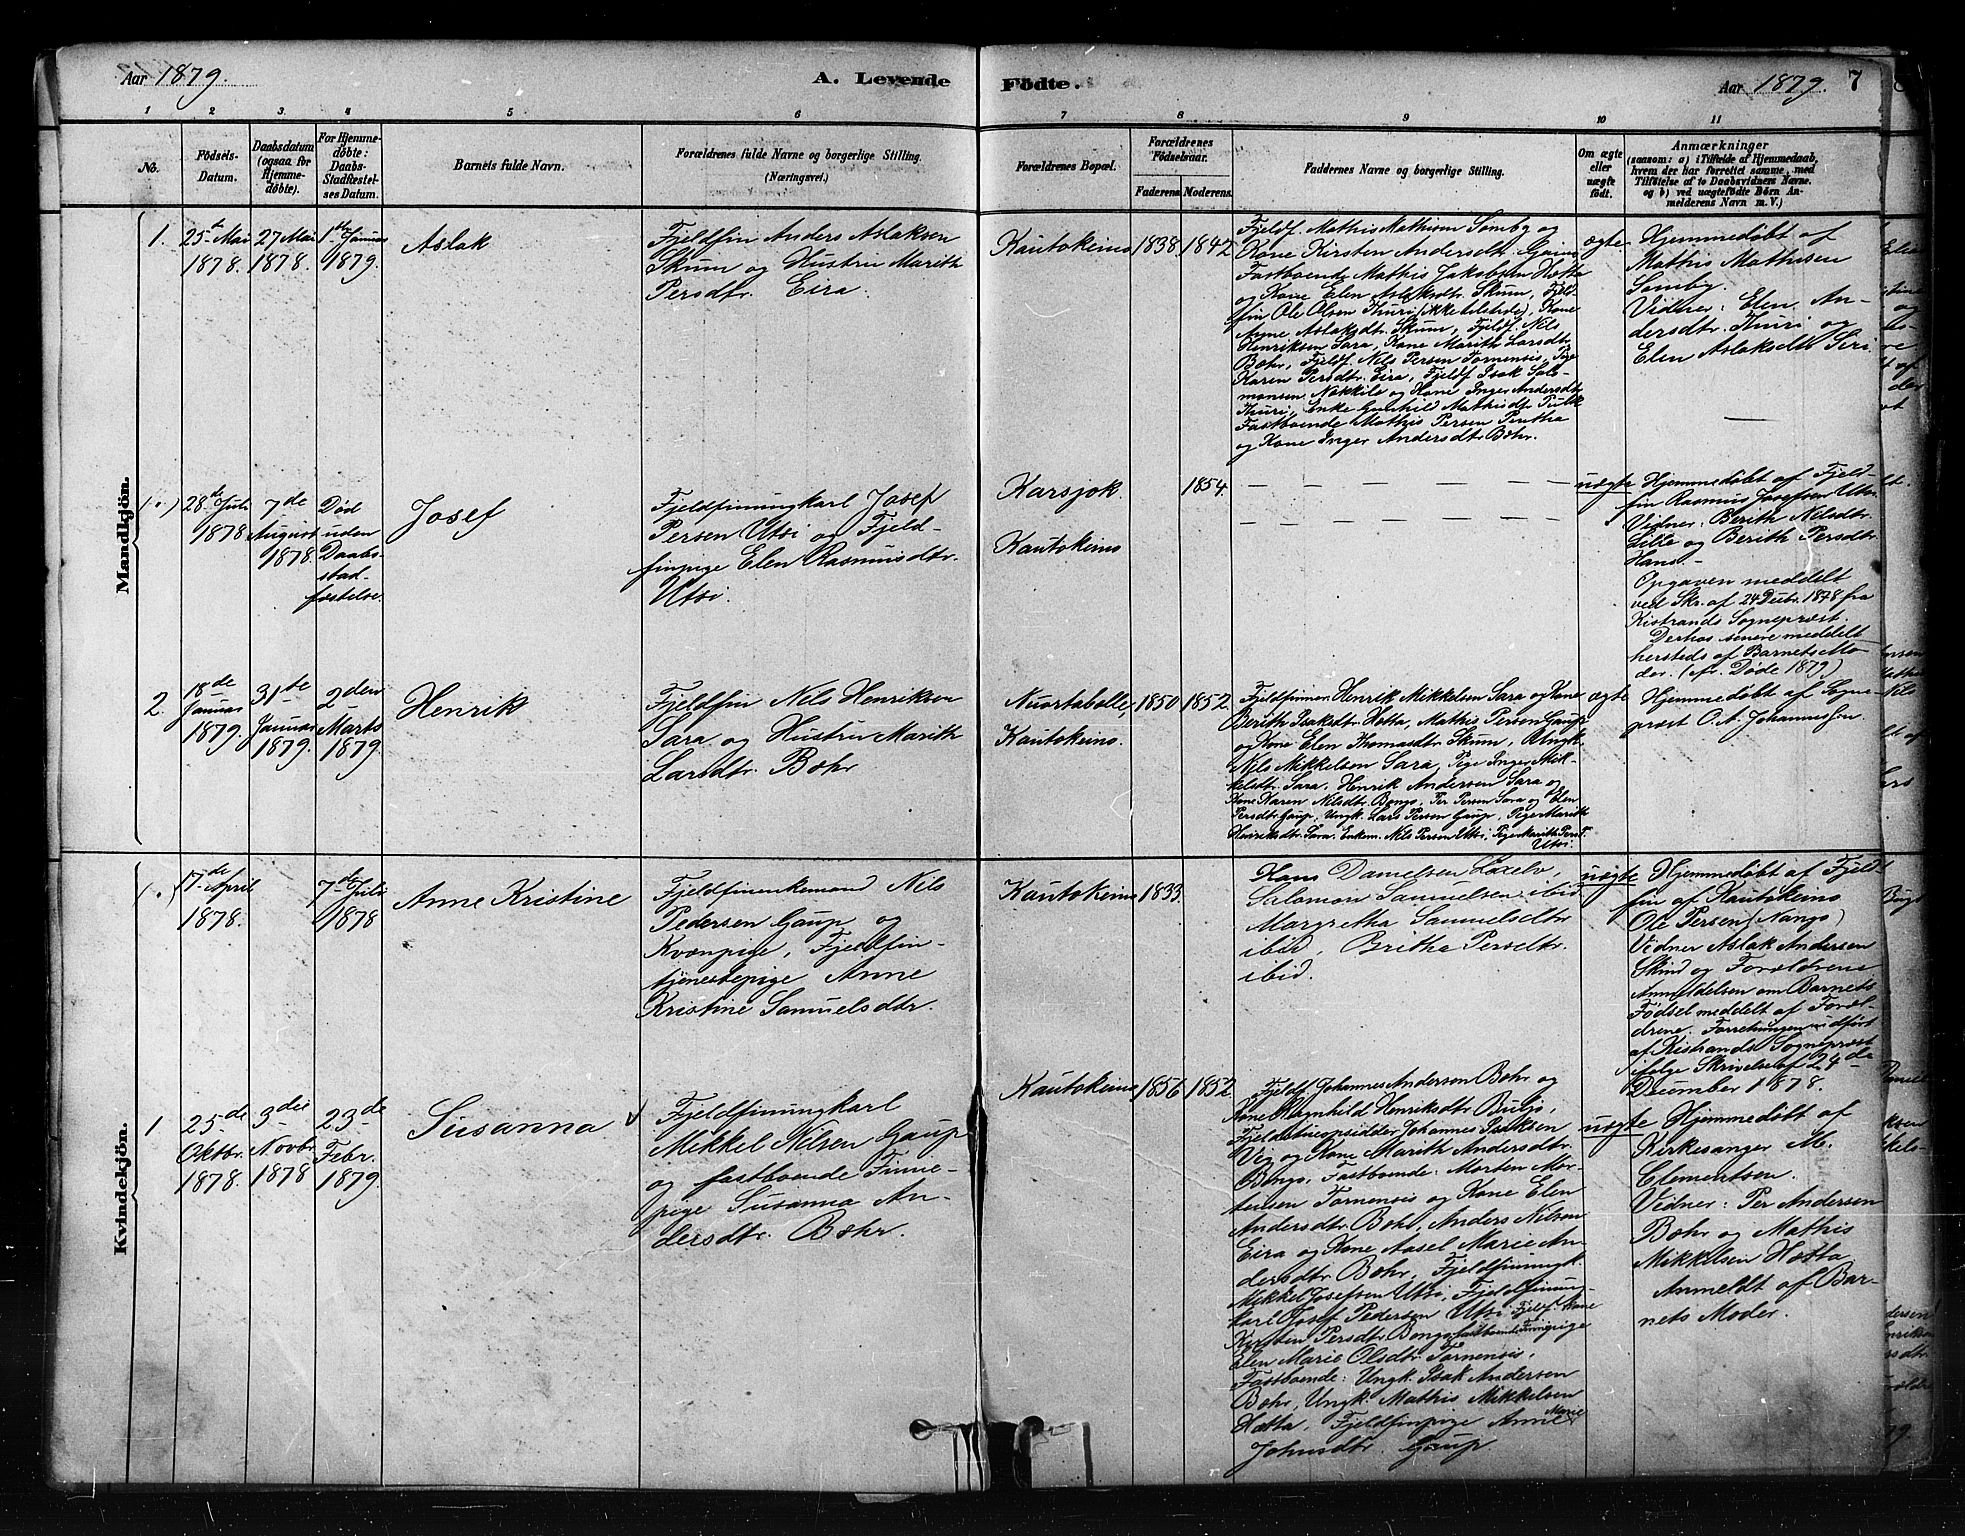 Aar 1879.
A. Levende Födte.
Aar 1879. 7
1 2 3 4 5 6 7 8 9 10 11
No.
Födsels-
Datum.
Daabsdatum
(ogsaa for
Hjemme-
døbte).
For Hjemme-
døbte:
Daabs-
Stadfæstel-
ses Datum.
Barnets fulde Navn.
Forældrenes fulde Navne og borgerlige Stilling.
(Næringsvei.)
Forældrenes Bopæl.
Forældrenes
Födselsaar.
Faderens Moderens.
Faddernes Navne og borgerlige Stilling.
Om ægte
eller
uægte
født.
Anmærkninger
(saasom: a) i Tilfælde af Hjemmedaab,
hvem der har forrettet samme, med
Tilføielse af to Daabsvidners Navne.
og b) ved uægtefødte Børn An-
melderens Navn m. V.)
Mandkjön.
1.
25te Mai
1878.
27 Mai
1878.
1ste Januar
1879.
Aslak
Fjeldfin Anders Aslaksen
Skum og Hustru Marith
Persdtr. Eira.
Kautokeino 1838 1842
Fjeldf. Mathis Mathisen Somby og
Kone Kirsten Andersdtr.
Fastboende Mathis Jakobsen Hætta
og Kone Elen Aslaksdtr. Skum, Fjeld-
fin Ole Olsen Thuri (ikke tilstede), Kone
Anne Aslaksdtr. Skum, Fjeldf. Nils
Henriksen Sara, Kone Marith Larsdtr.
Bær, Fjeldf. Nils Persen Tornensis, Pige
Karen Persdtr. Eira, Fjeldf. Isak Salo-
monsen Näkkile og Kone Inger Andersdtr.
Thuri, Enke Gunhild Mathisdtr. Pulk
Fastboende Mathis Persen Pentha
og Kone Inger Andersdtr. Bæhr.
ægte
Hjemmedøbt af
Mathis Mathisen
Somby.
Vidner: Elen An-
dersdtr. Thuri og
Elen Aslaksdtr. Siri
(0.)
28de Juli
1878
7de
August
1878.
Død
uden
Daabs-
stad-
fæstelse.
Josef
Fjeldfinungkarl Josef
Persen Utsi og Fjeld-
finpige Elen Rasmusdtr.
Utsi.
Karsjok
Kautokeino
1854.
uægte
Hjemmedøbt af Fjeld-
fin Rasmus Josefsen Utsi.
Vidner: Berith Nilsdtr.
Lille og Berith Persdtr.
Hans.-
Opgaven meddelt
ved Skr. af 24 Decbr. 1878 fra
Kistrands Sognepræst.
Derhos senere meddelt
hersteds af Barnets Mo-
der. (cfr. Døde 1879)
2.
18de
Januar
1879.
31te
Januar
1879.
2den
Marts
1879.
Henrik
Fjeldfin Nils Henriksen
Sara og Hustru Marith
Larsdtr. Bæhr
Nuortabelle,
Kautokeino.
1850 1852.
Fjeldfinner Henrik Mikkelsen Sara og Kone
Berith Isaksdtr. Hætta, Mathis Persen Gaup
og Kone Elen Thomasdtr. Skum, Ungk.
Nils Mikkelsen Sara, Pige Inger Mik-
kelsdtr. Sara, Henrik Andersen Sara og
Kone Karen Nilsdtr. Bongo, Per Persen Sara og Elen
Persdtr. Gaup, Ungk. Lars Persen Gaup, Pige Marith
Henriksdtr. Sara. Enkem. Nils Persen Utsi, Pige Marith Persd.
Utsi.
ægte
Hjemmedøbt af Sogne-
præst O. A. Johannessen.
Kvindekjön.
(0.)
17de April
1878.
7de Juli
1878
Anne Kristine
Fjeldfinenkemand Nils
Pedersen Gaup og
Kvænpige, Fjeldfin-
tjenestepige Anne
Kristine Samuelsdtr.
Kautokeino 1833.
Hans Danielsen Laxelv,
Salomon Samuelsen ibid
Margretha Samuelsdtr
ibid, Britha Persdtr.
ibid.
uægte
Hjemmedøbt af Fjeld-
fin af Kautokeino
Ole Persen (Nango)
Vidner Aslak Andersen
Skind og Forældrene
Anmeldelsen om Barnets
Fødsel meddelt af Foræl-
drene. Forretningen udført
af Kistrands Sognepræst
ifølge Skrivelse af 24de
December 1878.
1
25de
Oktbr.
1878.
3die
Novbr.
1878
23de
Febr.
1879.
Susanna
Fjeldfinungkarl
Mikkel Nilsen Gaup
og fastboende Finne-
pige Susanna An-
dersdtr. Bæhr.
Kautokeino 1856 1852.
Fjeldf. Johannes Andersen Bæhr og
Kone Ragnhild Henriksdtr. Buljo,
Johannes Isaksen
Vig og Kone Marith Andersdtr.
Bongo, Fastboende: Morten Mor-
tensen Tornensis og Kone Elen
Andersdtr. Bæhr, Anders Nilsen
Eira og Kone Aasel Marie An-
dersdtr. Bæhr, Fjeldfinungk.
Mikkel Josefsen Utsi, Fjeldfinun-
karl Josef Pedersen Utsi, Fjeldf. Kone
Kirsten Persdtr. Bongo, fastboende Finnpige
Elen Marie Olsdtr. Tornensis,
Fastboende: Ungk. Isak Andersen
Bæhr, Ungk. Mathis Mikkelsen
Hætta, Fjeldfinpige Anne Marie
Johnsdtr. Gaup
uægte
Hjemmedøbt af
Kirkesanger M.
Clementsen.
Vidner: Per Andersen
Bæhr og Mathis
Mikkelsen Hætta
Anmeldt af Bar-
nets Moder.